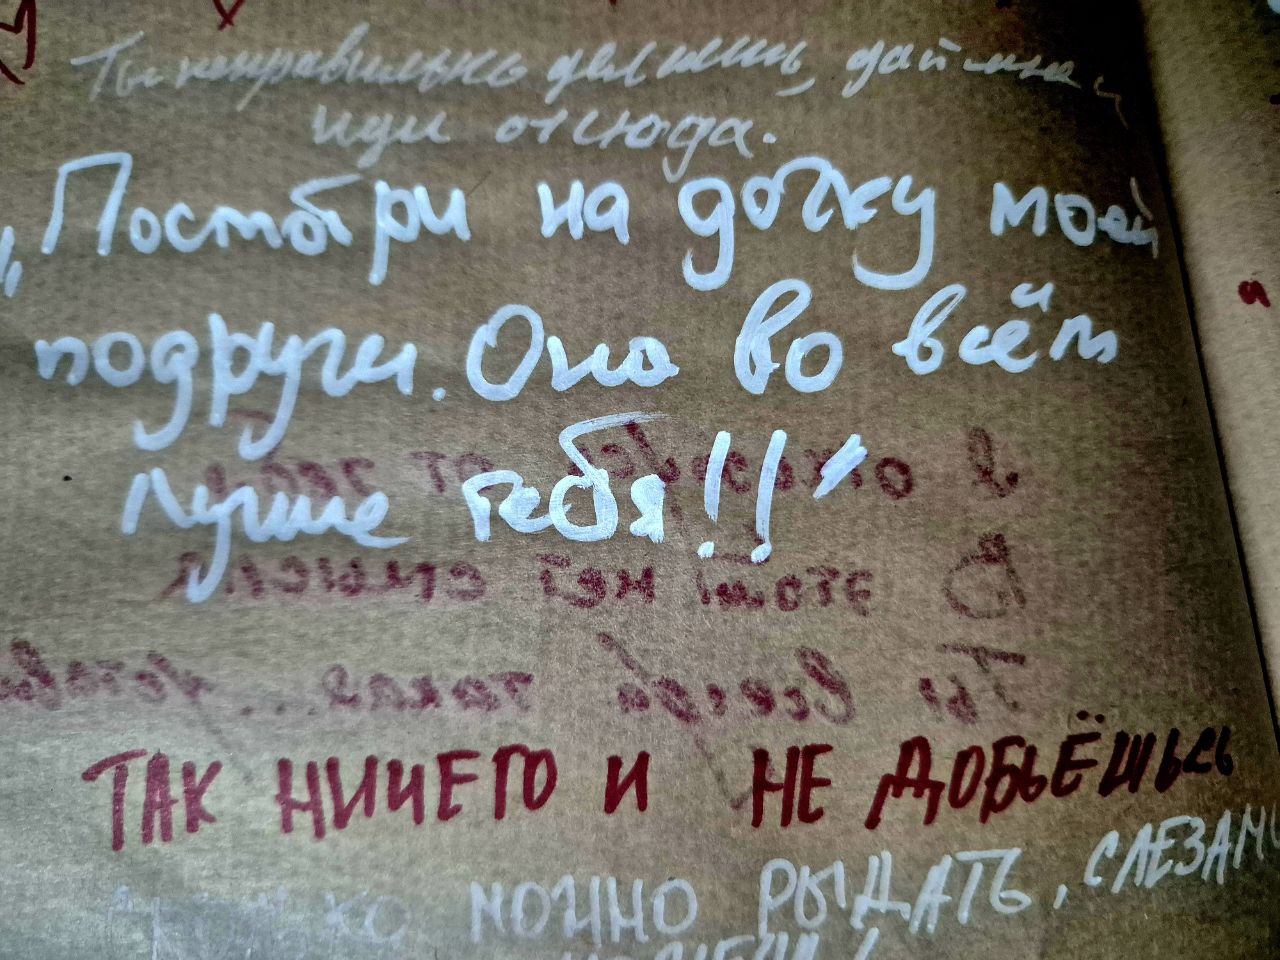 Ты неправильно делаешь, дай мне и
иди отсюда.
„Постотри на дочку моей
подруги. Она во всём
лучше тебя!!"
от тебя
В этом нет смысла
Ты всегда такая...
ТАК НИЧЕГО И НЕ ДОБЬЁШЬСЬ
МОЖНО РЫДАТЬ, СЛЕЗАМИ